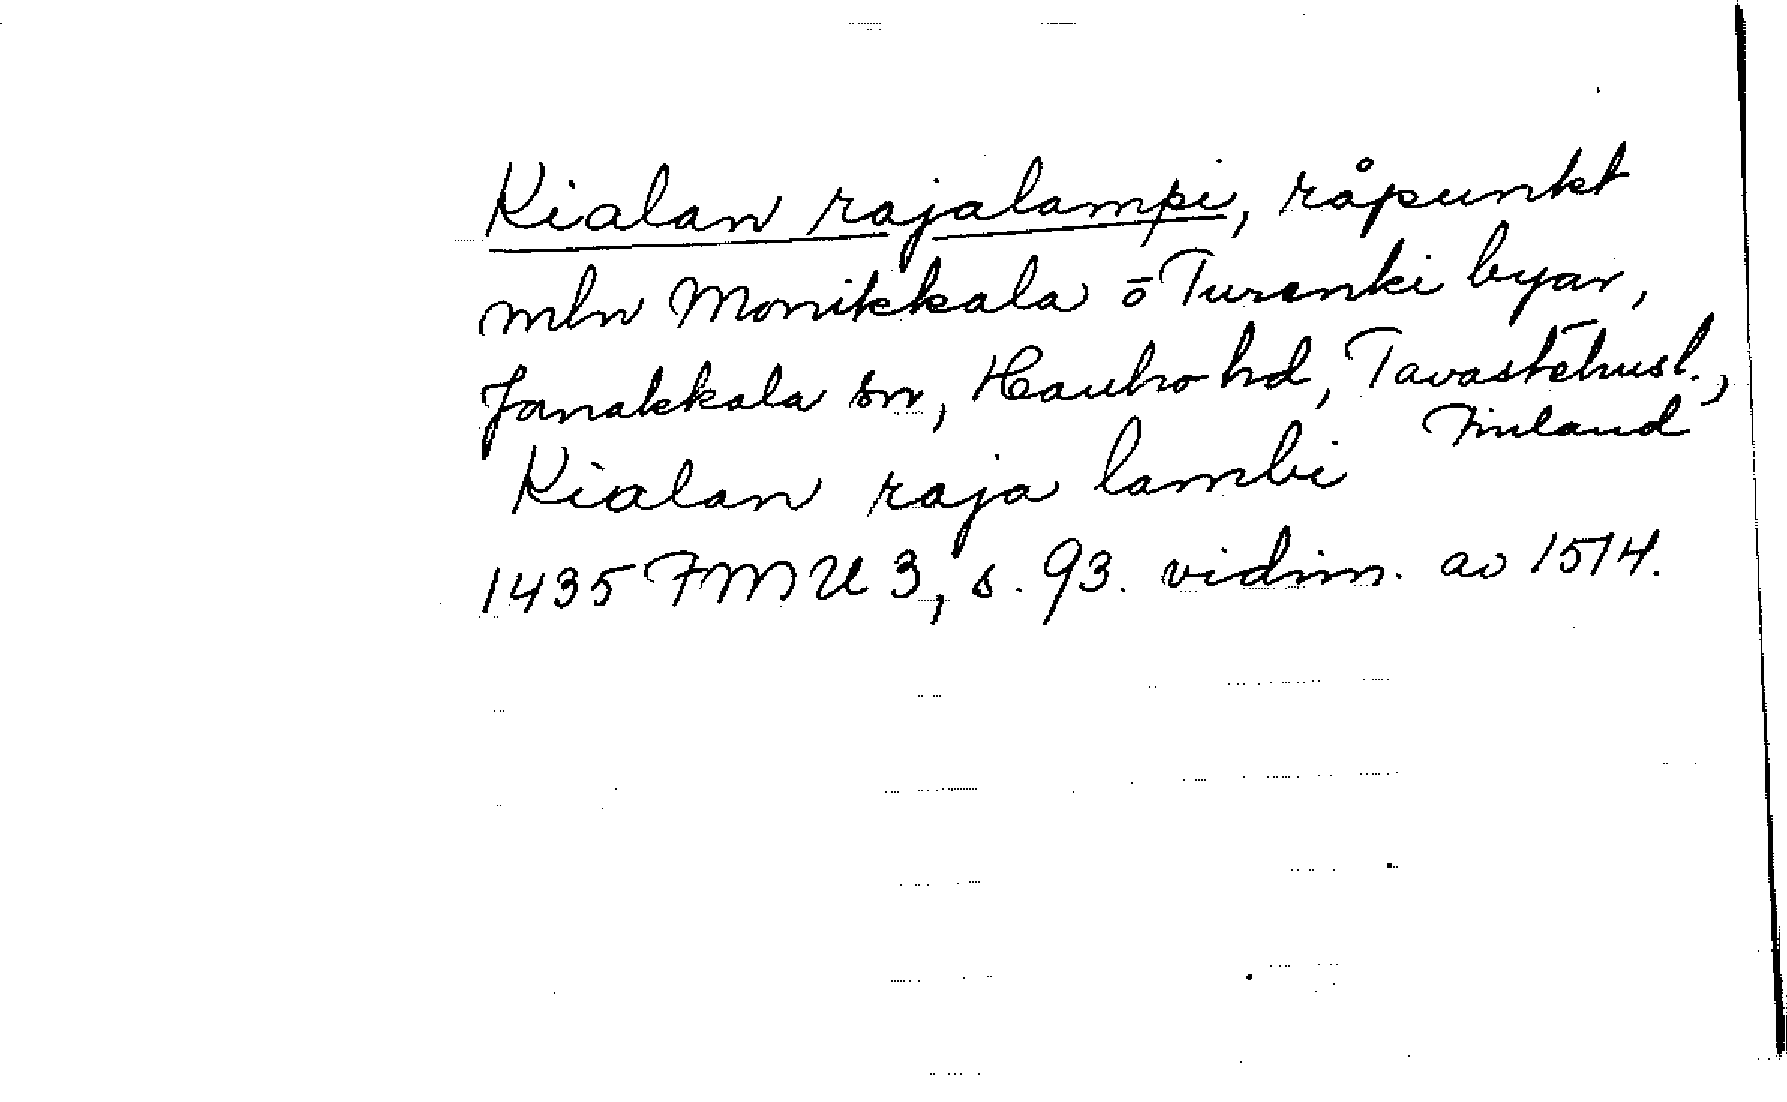 Kialan rajalampi, råpunkt
mln Monikkala ō Turenki byar,
Janakkala sn, Hauho hd, Tavastehusl.,
Finland
Kialan raja lambi
1435 FMU 3, s. 93. vidim. av 1514.